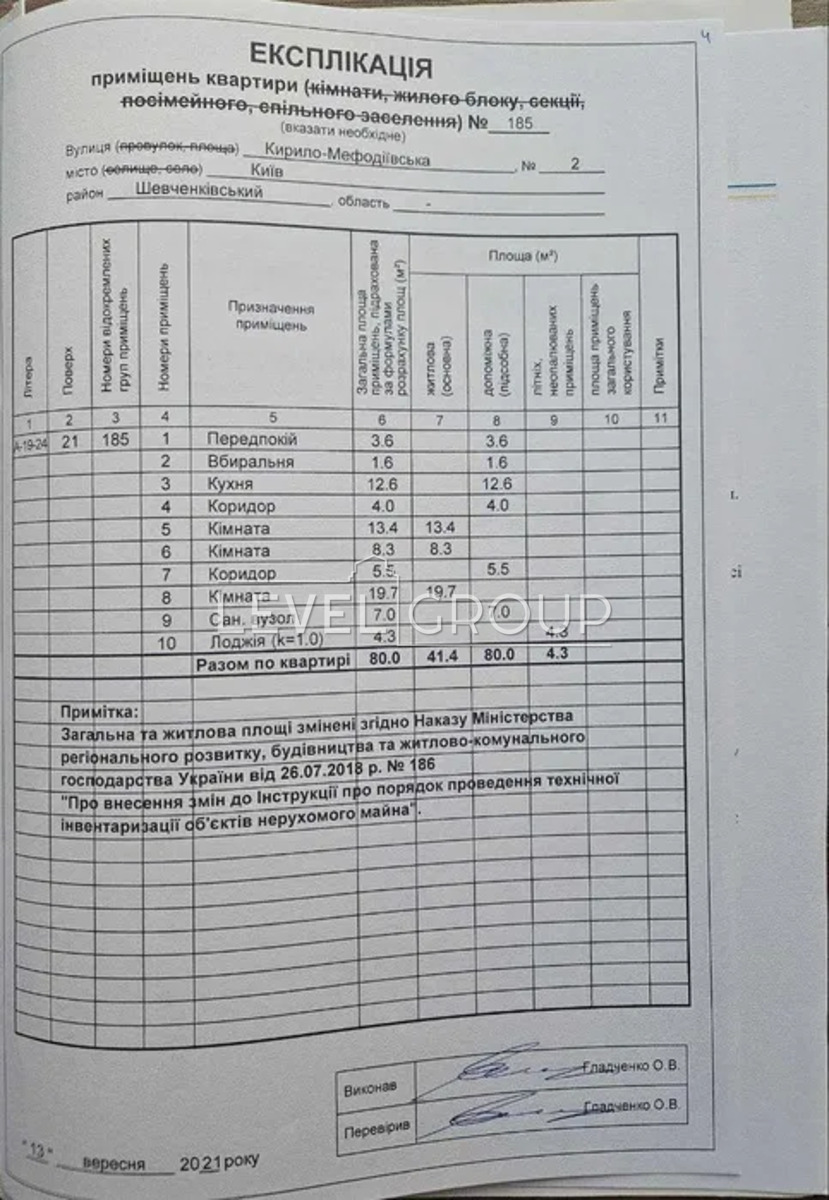 4
ЕКСПЛІКАЦІЯ
приміщень квартири (кімнати, жилого блоку, секції,
посімейного, спільного заселення) № 185
(вказати необхідне)
Вулиця (провулок, площа) Кирило-Мефодіївська , № 2
місто (селище, село) Київ
район Шевченківський , область -
Літера
Поверх
Номери відокремлених груп приміщень
Номери приміщень
Призначення приміщень
Загальна площа приміщень, підрахована за формулами розрахунку площ (м²)
Площа (м²)
житлова (основна)
допоміжна (підсобна)
літніх, неопалюваних приміщень
площа приміщень загального користування
Примітки
1 2 3 4 5 6 7 8 9 10 11
А-19-24 21 185 1 Передпокій 3.6 3.6
2 Вбиральня 1.6 1.6
3 Кухня 12.6 12.6
4 Коридор 4.0 4.0
5 Кімната 13.4 13.4
6 Кімната 8.3 8.3
7 Коридор 5.5 5.5
8 Кімната 19.7 19.7
9 Сан. вузол 7.0 7.0
LEVEL GROUP
10 Лоджія (k=1.0) 4.3 4.3
Разом по квартирі 80.0 41.4 80.0 4.3
Примітка:
Загальна та житлова площі змінені згідно Наказу Міністерства
регіонального розвитку, будівництва та житлово-комунального
господарства України від 26.07.2018 р. № 186
"Про внесення змін до Інструкції про порядок проведення технічної
інвентаризації об'єктів нерухомого майна".
Виконав Гладченко О.В.
Перевірив Гладченко О.В.
"13" вересня 2021 року